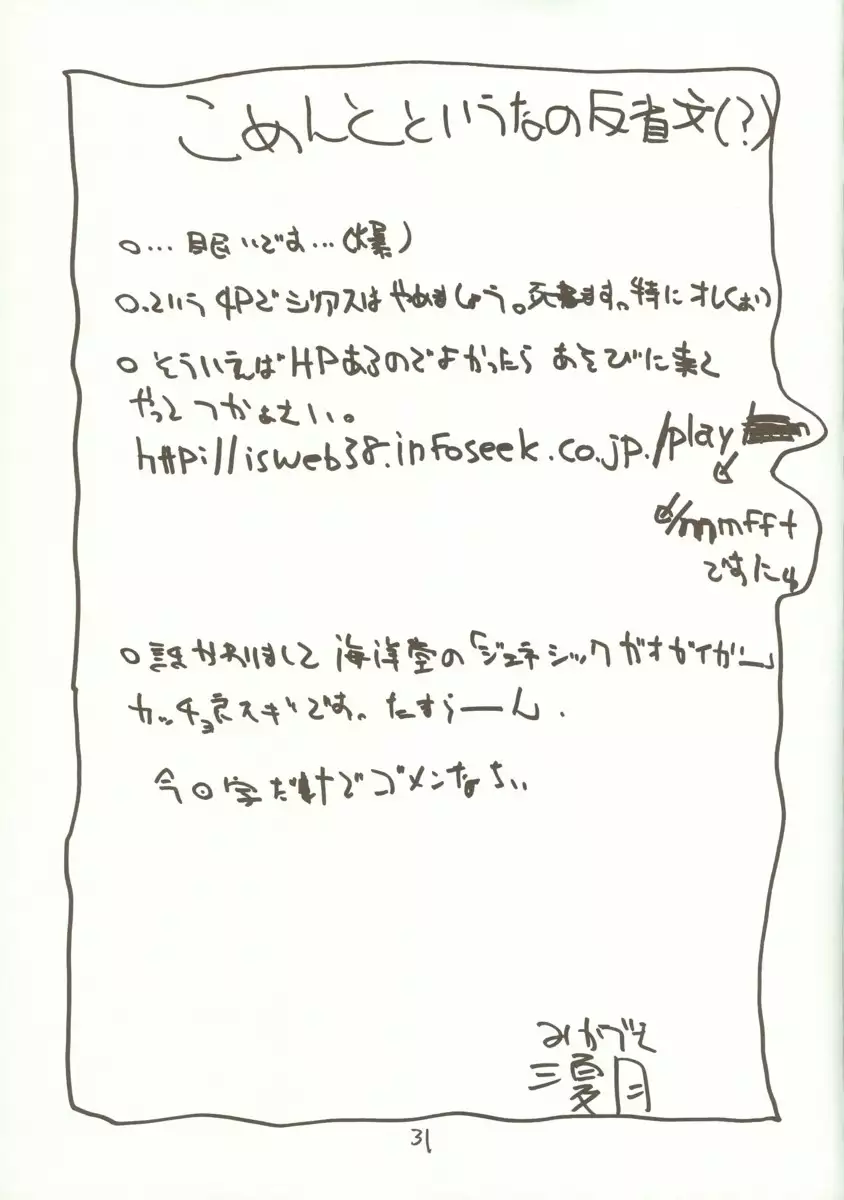 こめんとというなの反省文(?)
○…眠いです…(爆)
○.という4Pでジアスはやめましょう。死ねます。特にオレ(ぉぃ)
○そういえばHPあるのでよかったらあそびに来て
やってつかぁさい。
http://isweb38.infoseek.co.jp./play
/mmfft
ですにゅ
○誰かおりまして海洋堂の「ジェネシックガオガイガー」
カッチョ良スギです。たすらーん.
今回字だけでゴメンなちい
みかづき
三夏月
31